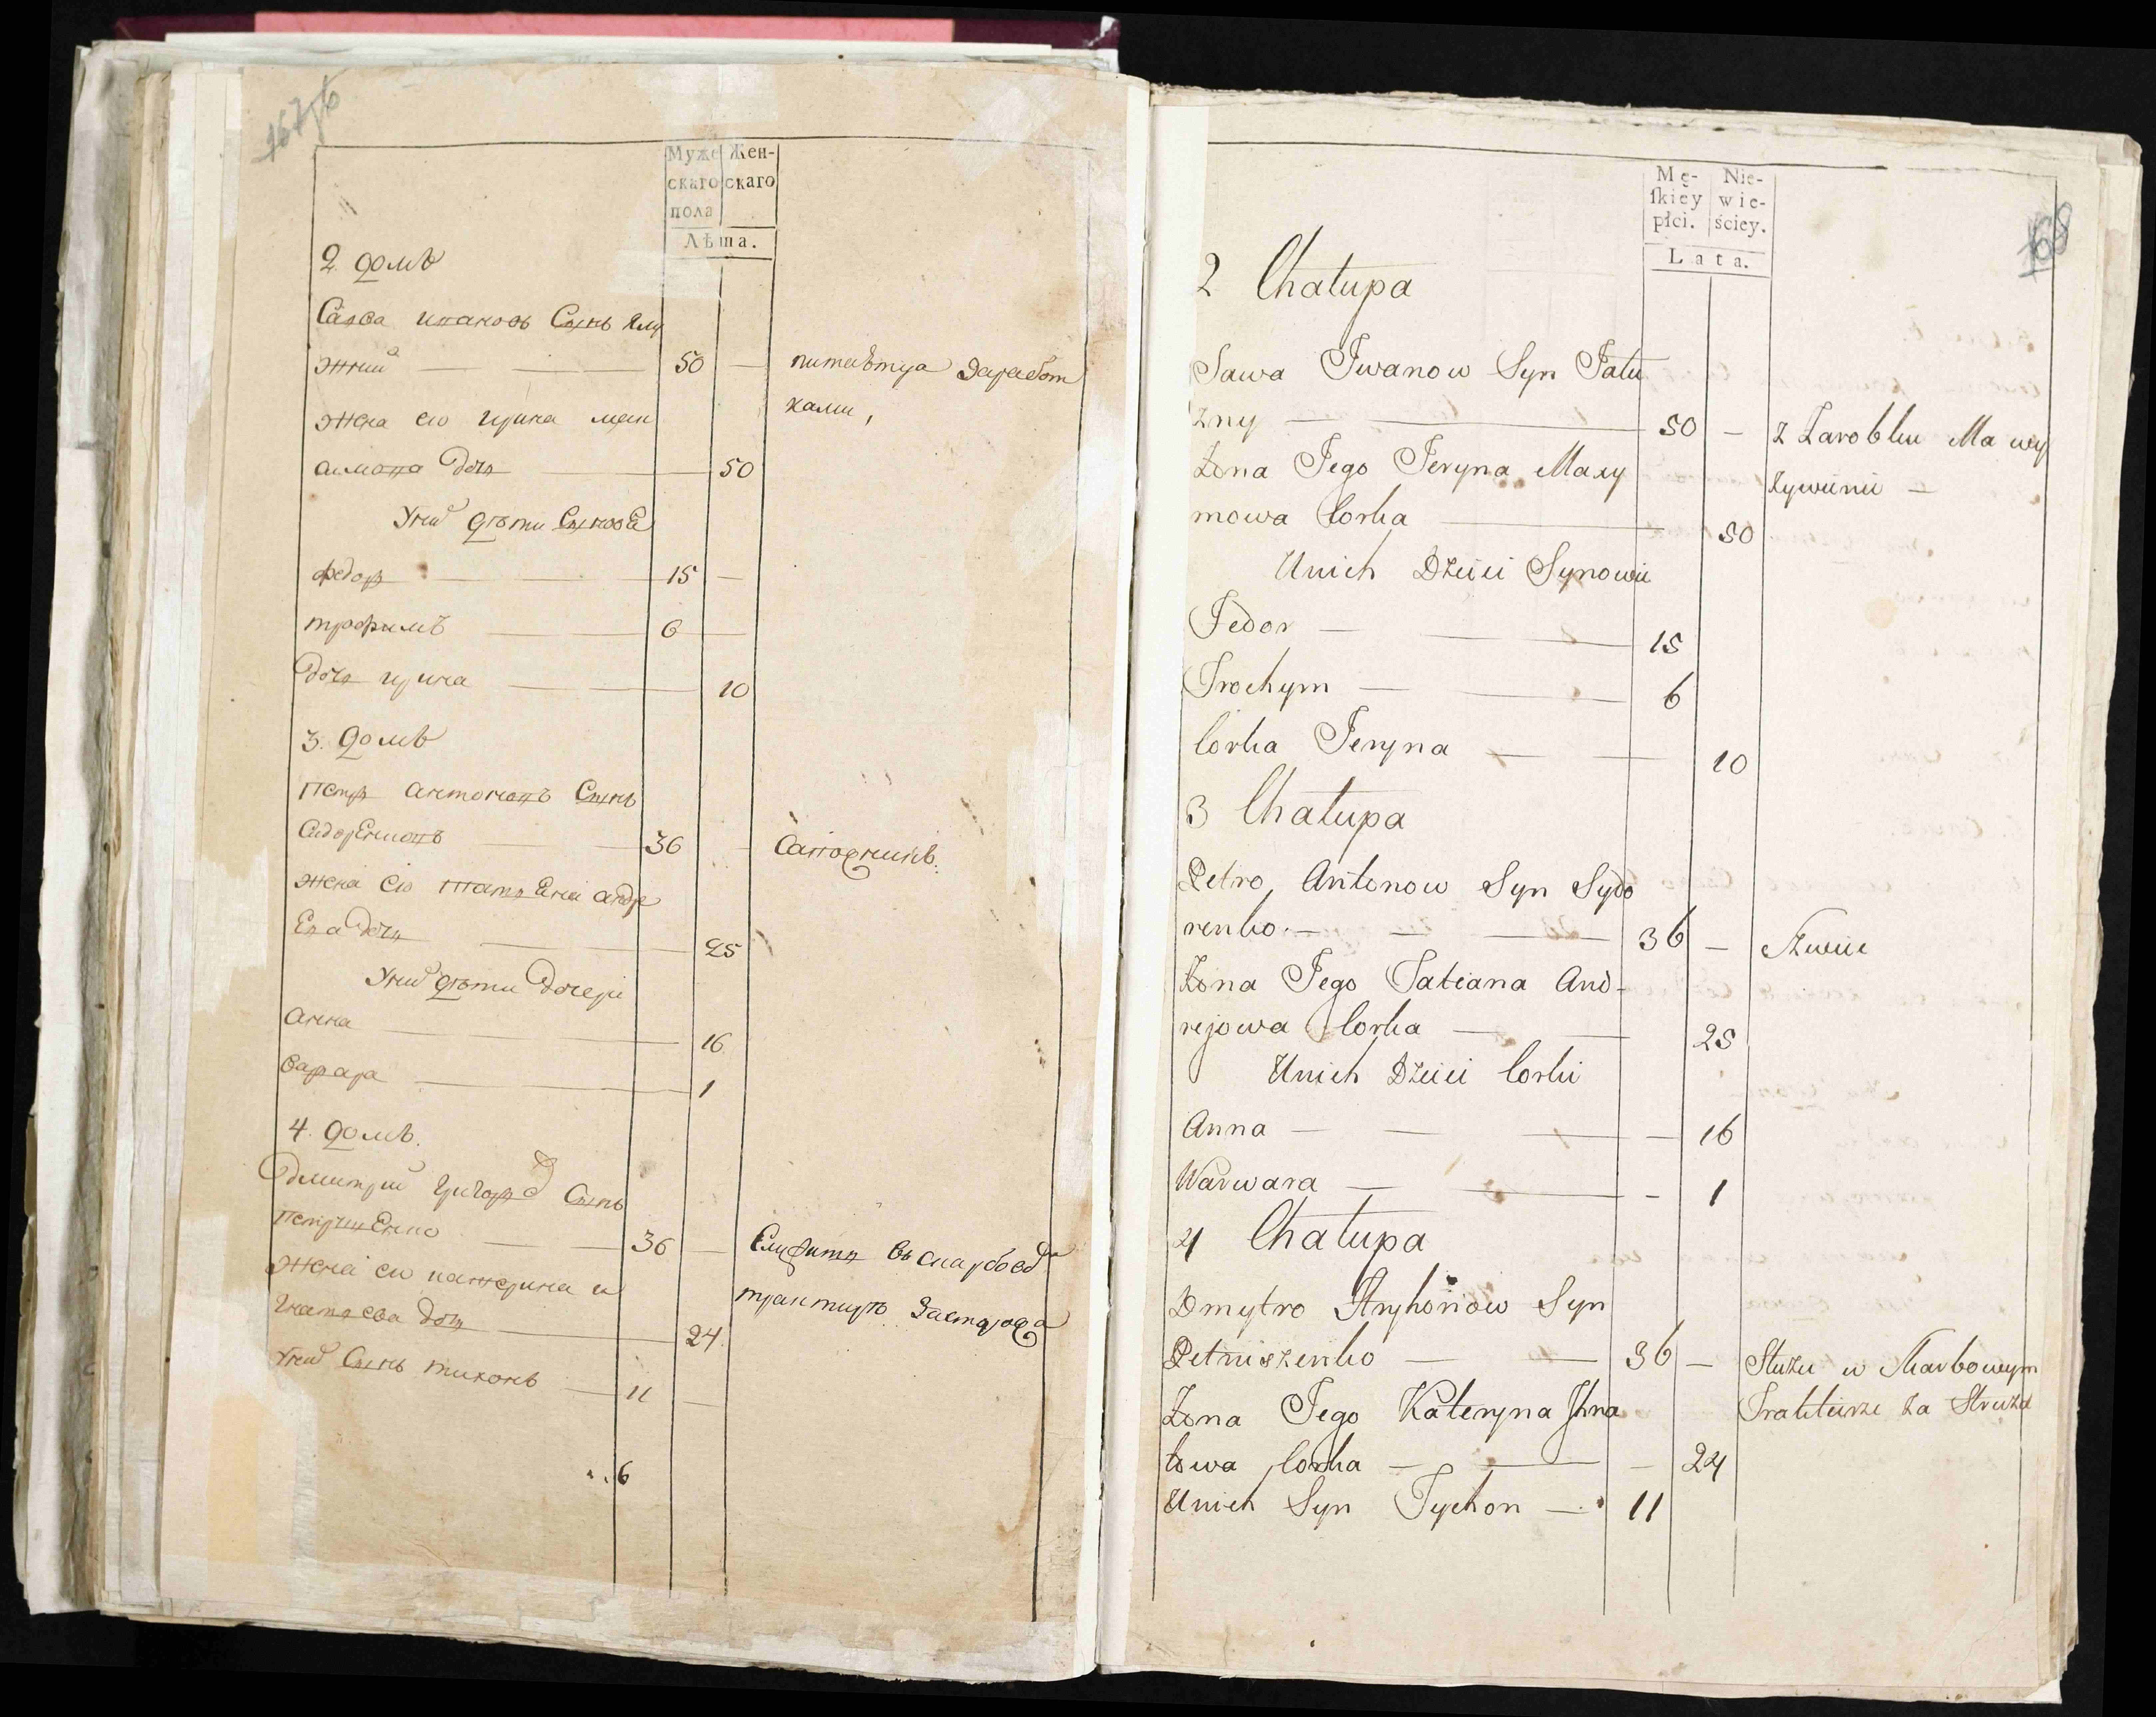 167об
Муже Жен-
скаго скаго
пола
Лѣта.
2. домъ
Савва ивановъ СынъЯлу
жний 50 — питаѣтца Заработ
ками,
жена ево ирина мак
симова дочь 50
У них дѣти Сыновѣ
федоръ 15 —
трофимъ 6 —
дочь ирина 10
3. домъ
Петръ антоновъ Сынъ
Сидоренковъ 36 — Сапожникъ.
жена ево татьяна андре
Ева дочь 25
У них дѣти дочери
анна 16
варвара 1
4. домъ.
дмитрий григорьев Сынъ
Петрушенко 36 — Служитъ въ скарбовом
жена ево катерина и трактирѣ За сторожа
гнатьева дочь 24
У них Сынъ тихонъ 11 —
6
168
Mę- Nie-
ſkiey wie-
płci. ściey.
Lata.
2 Chałupa
Sawa Iwanow Syn Jału
żny 50 — z Zarobku Ma wy
Żona Jego Jeryna Maxy żywieni —
mowa Corka 50
U nich Dzieci Synowie
Fedor 15
Trochym 6
Corka Jeryna 10
3 Chałupa
Petro Antonow Syn Sydo
renko 36 — Szwiec
Żona Jego Tatiana And-
rejowa Corka 25
U nich Dzieci Corki
Anna — 16
Warwara — 1
4 Chałupa
Dmytro Hryhorow Syn
Petruszenko 36 — Służu w Skarbowym
Żona Jego Kateryna Ihna Traktierze za Struża
towa Corka — 24
U nich Syn Tychon — 11